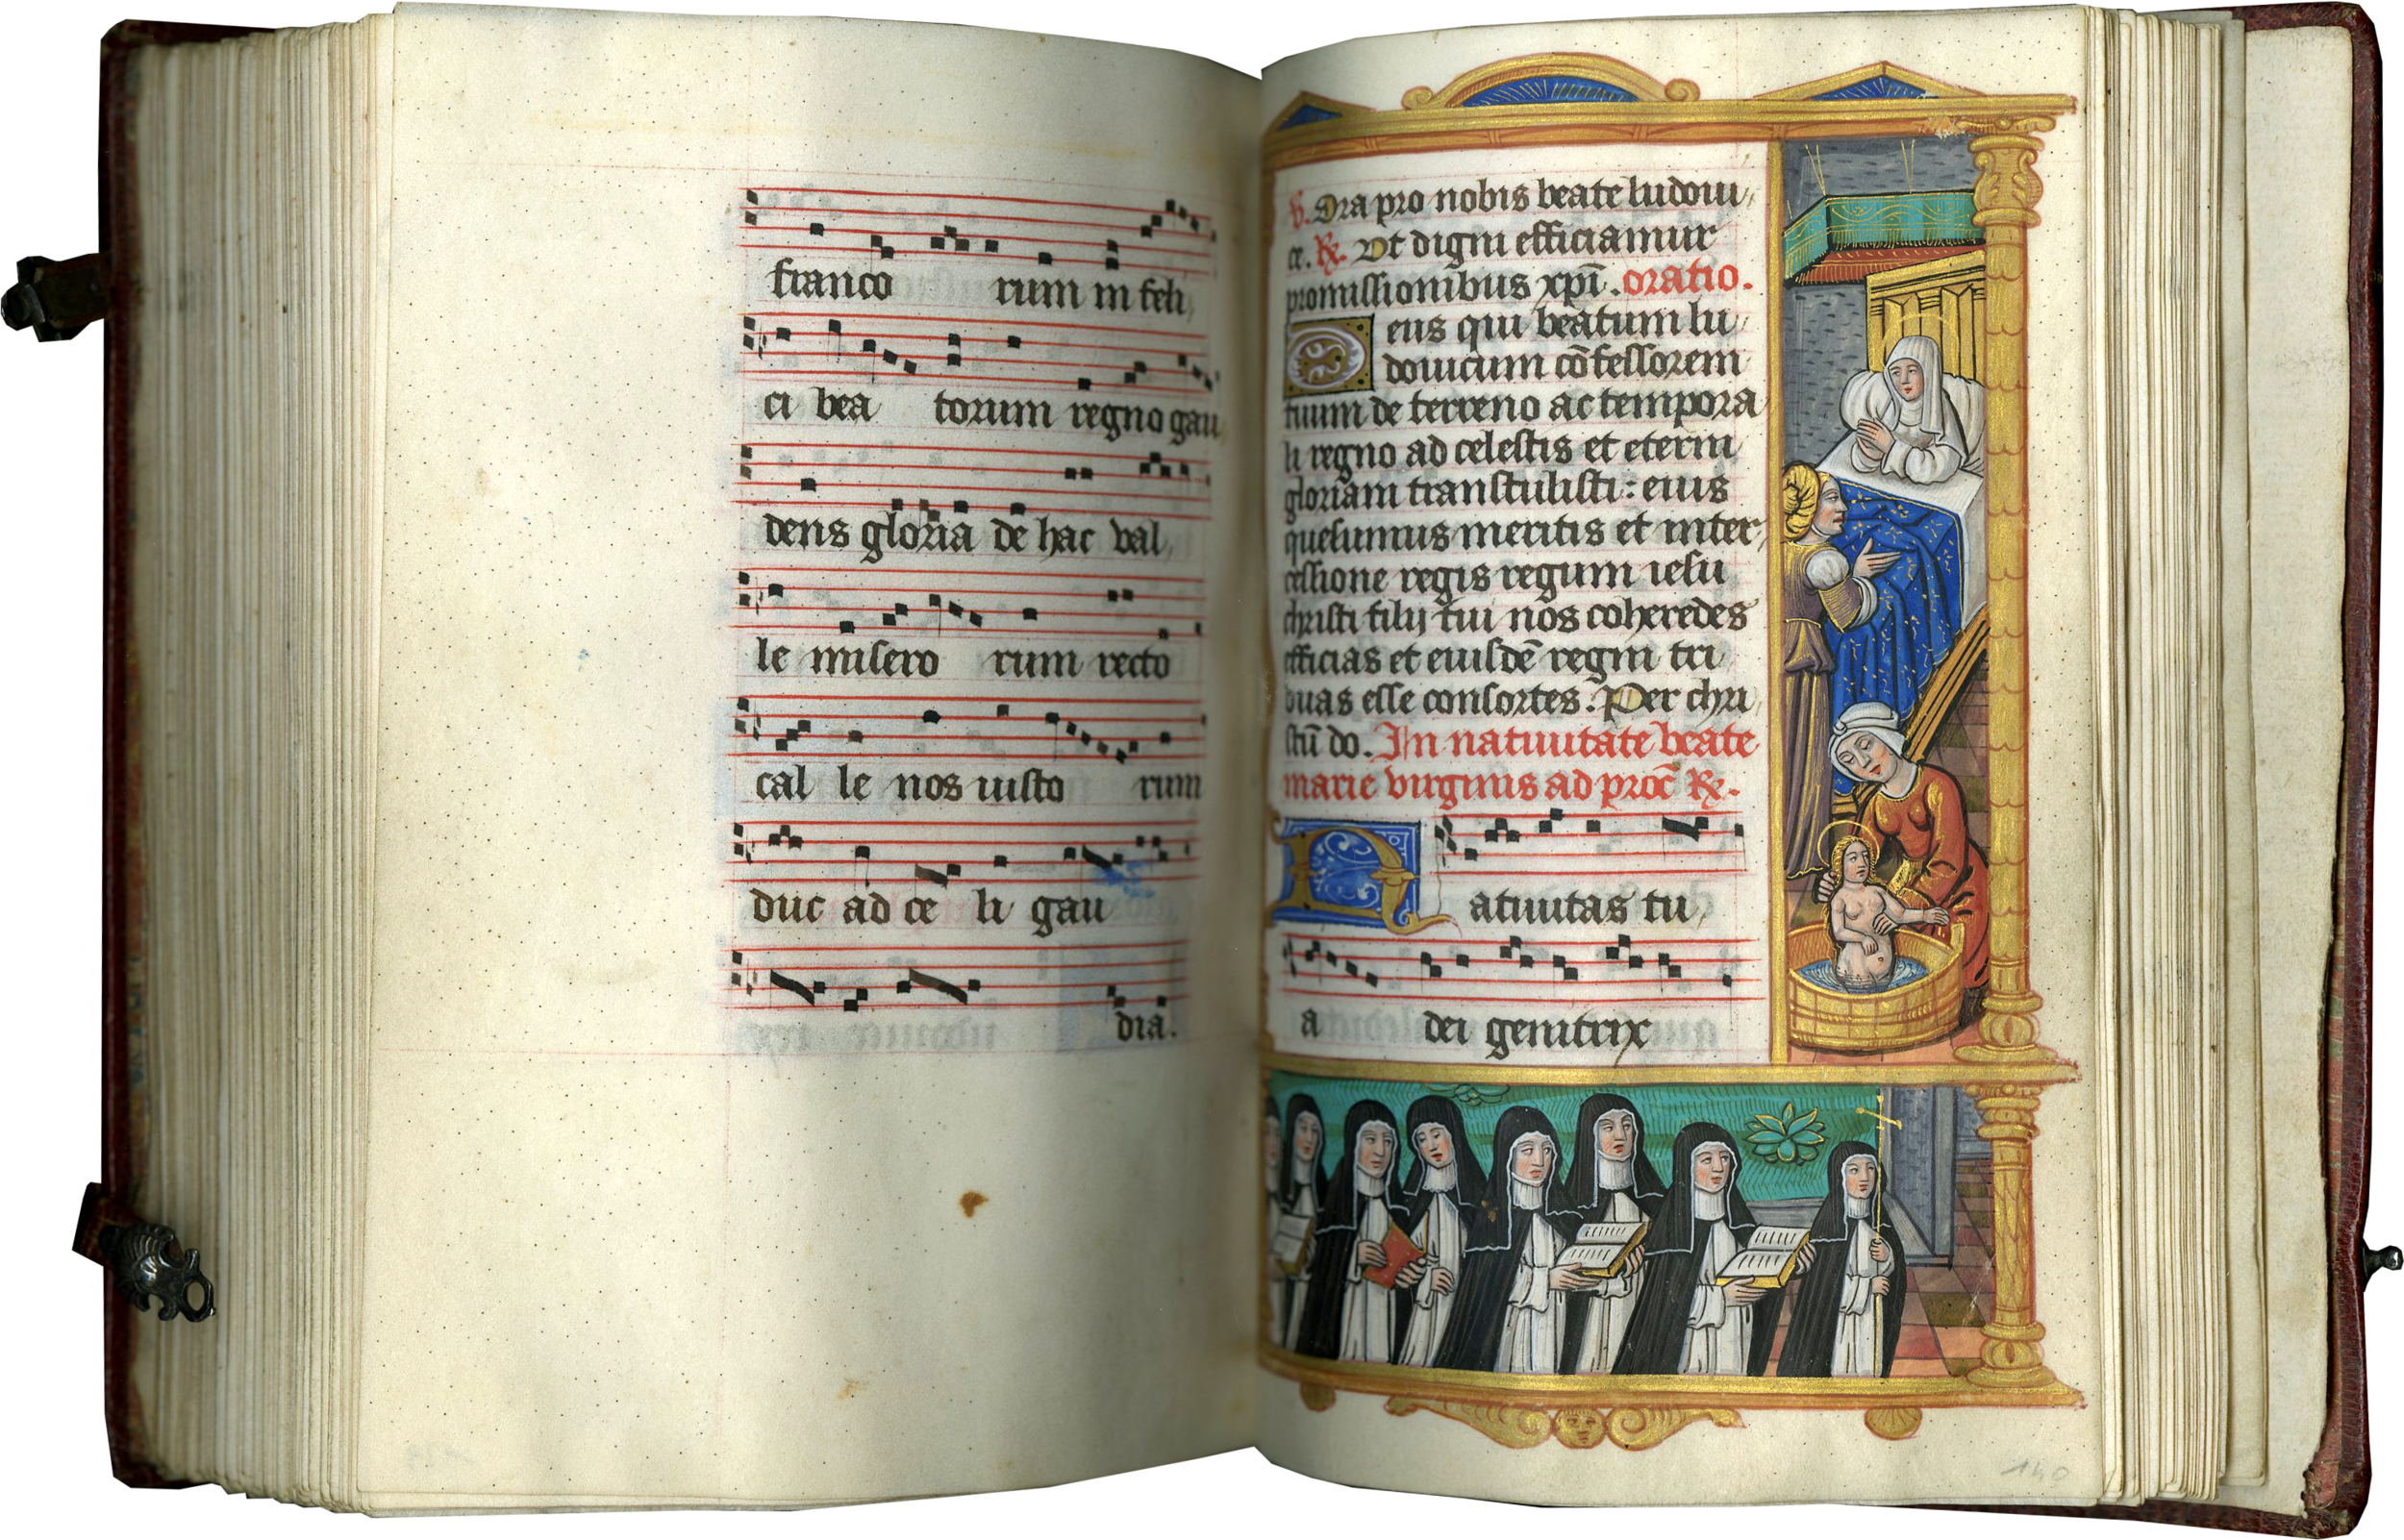 franco rum in feli
ci bea torum regno gau
dens gloria de hac val
le misero rum recto
cal le nos iusto rum
duc ad ce li gau
dia.
V. Ora pro nobis beate ludoui
ce. R. Ut digni efficiamur
promissionibus xpī. oratio.
Deus qui beatum lu
douicum cōfessorem
tuum de terreno ac tempora
li regno ad celestis et eterni
gloriam transtulisti: eius
quesumus meritis et inter
cessione regis regum iesu
christi filij tui nos coheredes
efficias et eiusdē regni tri
buas esse consortes. Per chri
stū do. In natiuitate beate
marie virginis ad procē R.
Natiuitas tu
a dei genitrix
140